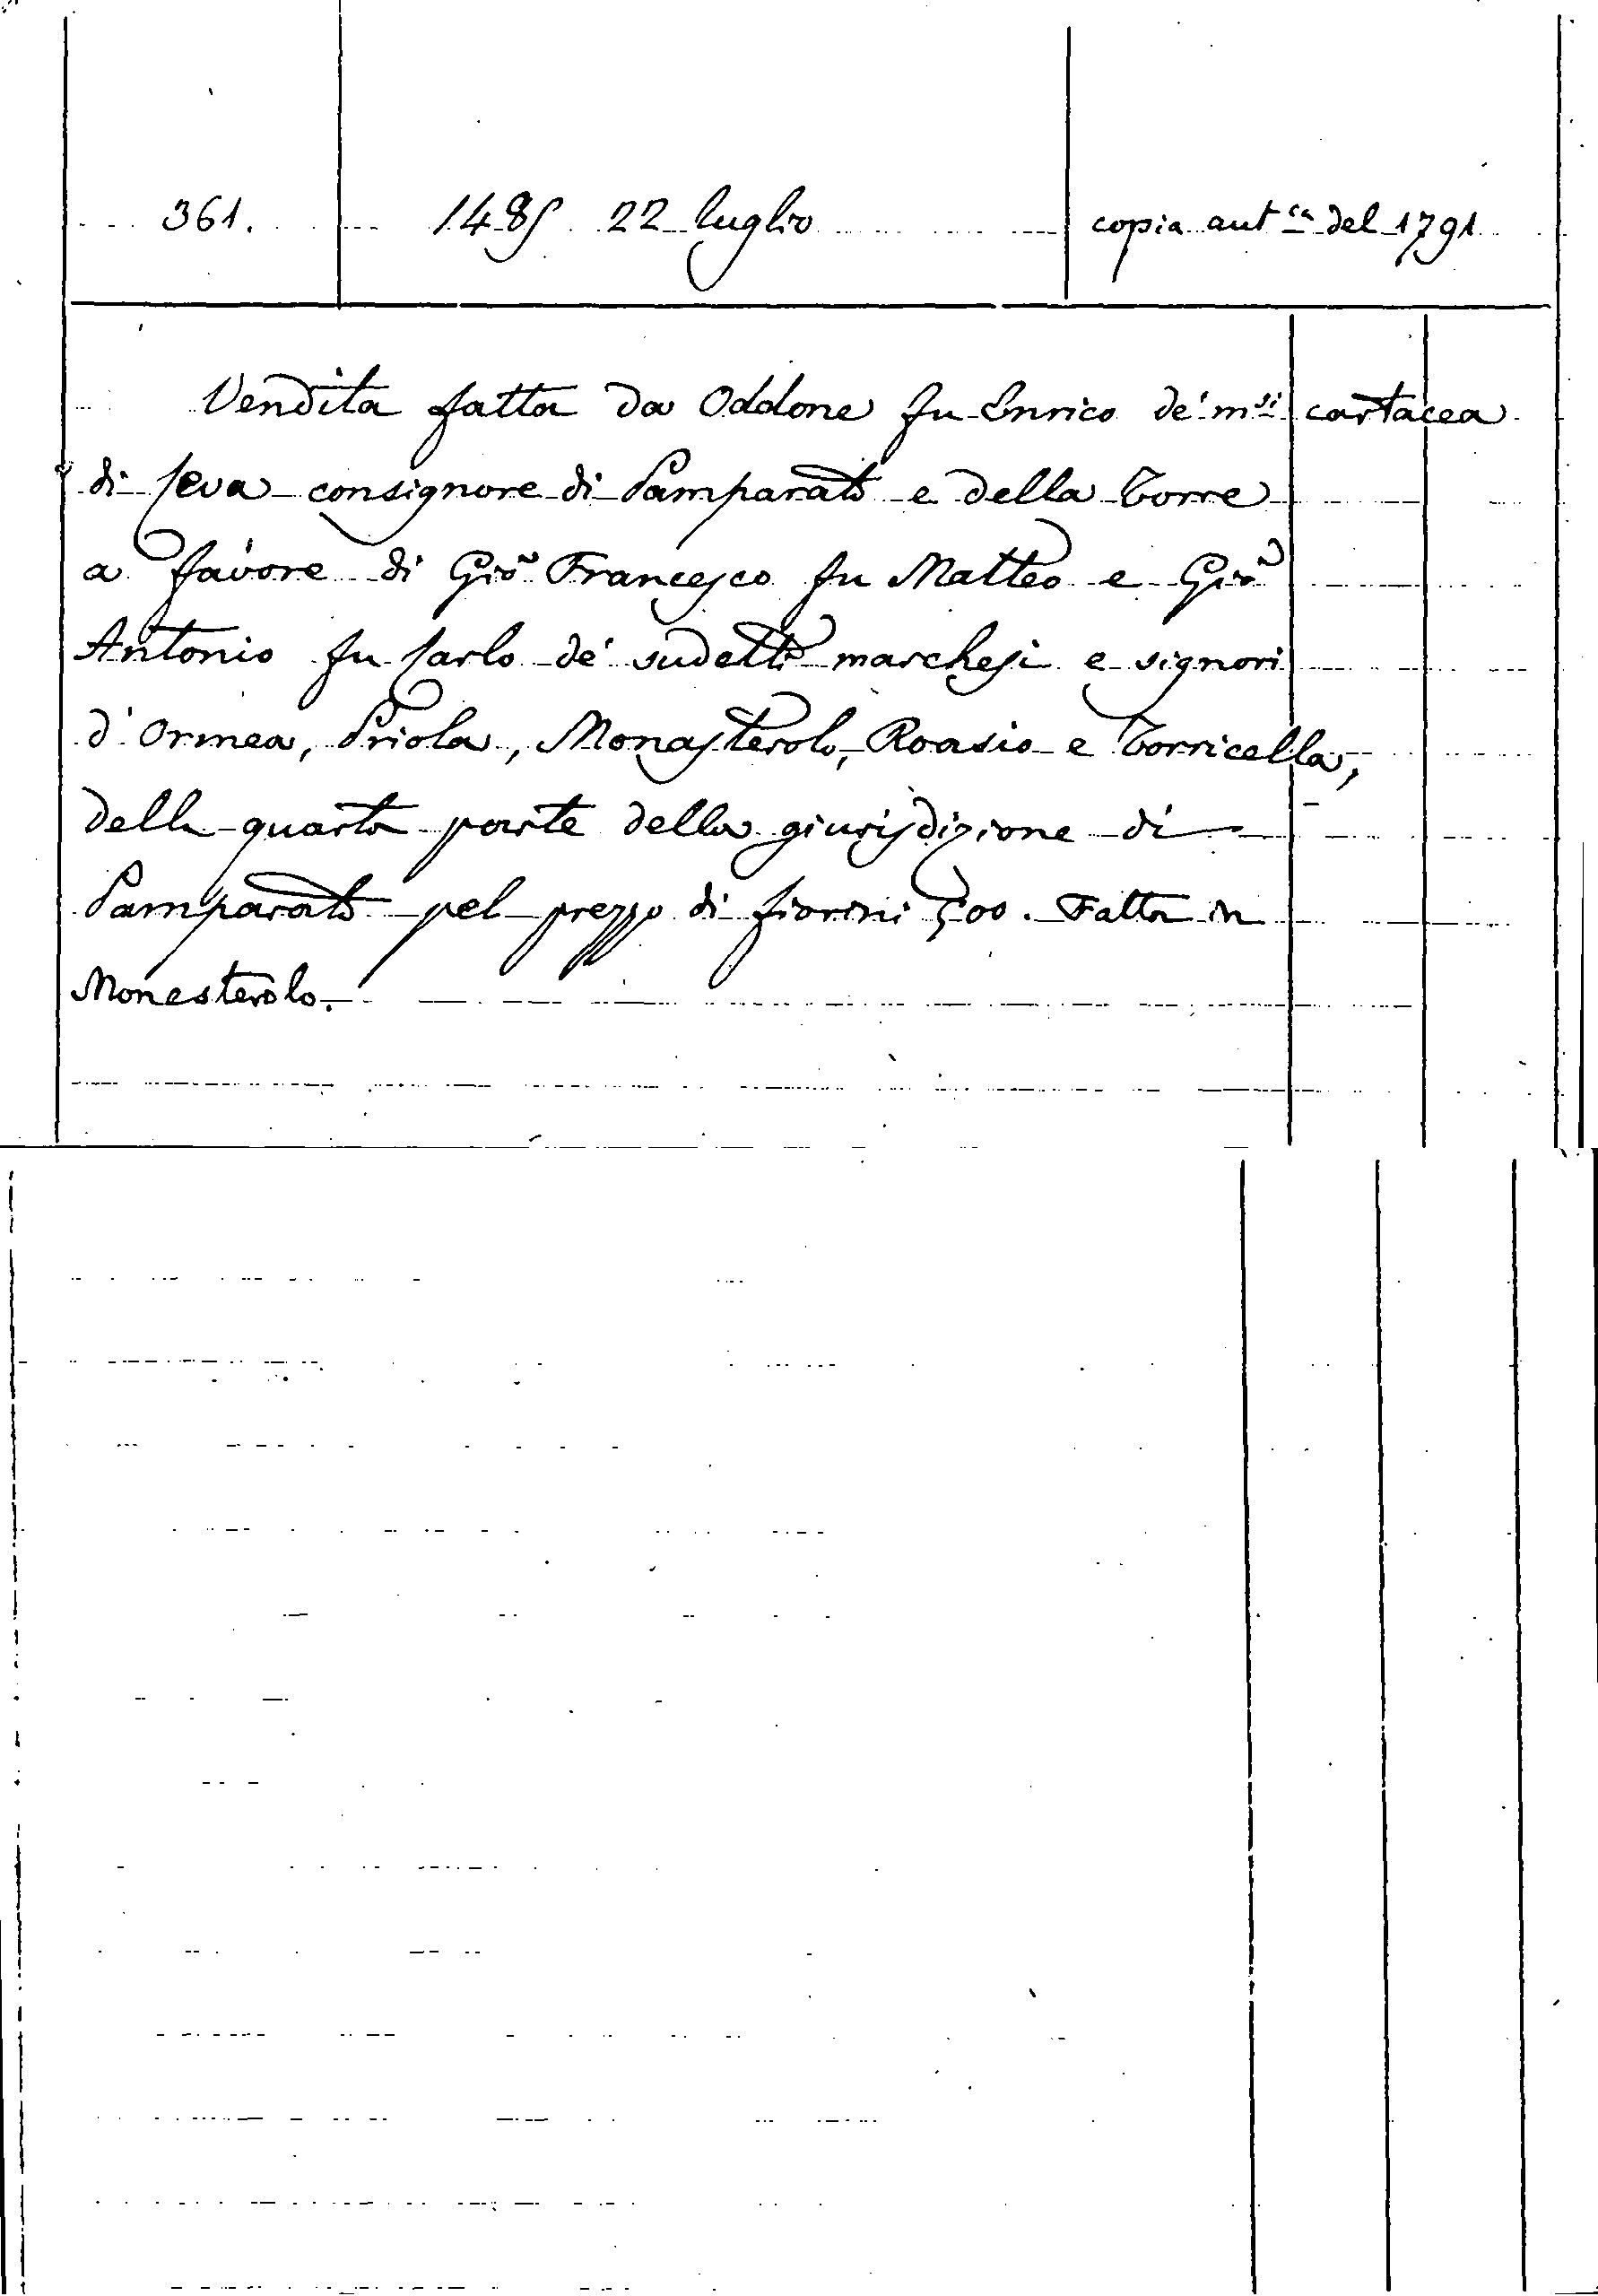 361. 1485 22 luglio copia aut.ca del 1791
Vendita fatta da Oddone fu Enrico de' m.si cartacea
di Ceva consignore di Pamparato e della Torre
a favore di Gio Francesco fu Matteo e Gio
Antonio fu Carlo de' sudetti marchesi e signori
d'Ormea, Priola, Monasterolo, Roasio e Torricella,
della quarta parte della giurisdizione di
Pamparato pel prezzo di fiorini 500. Fatta in
Monesterolo.